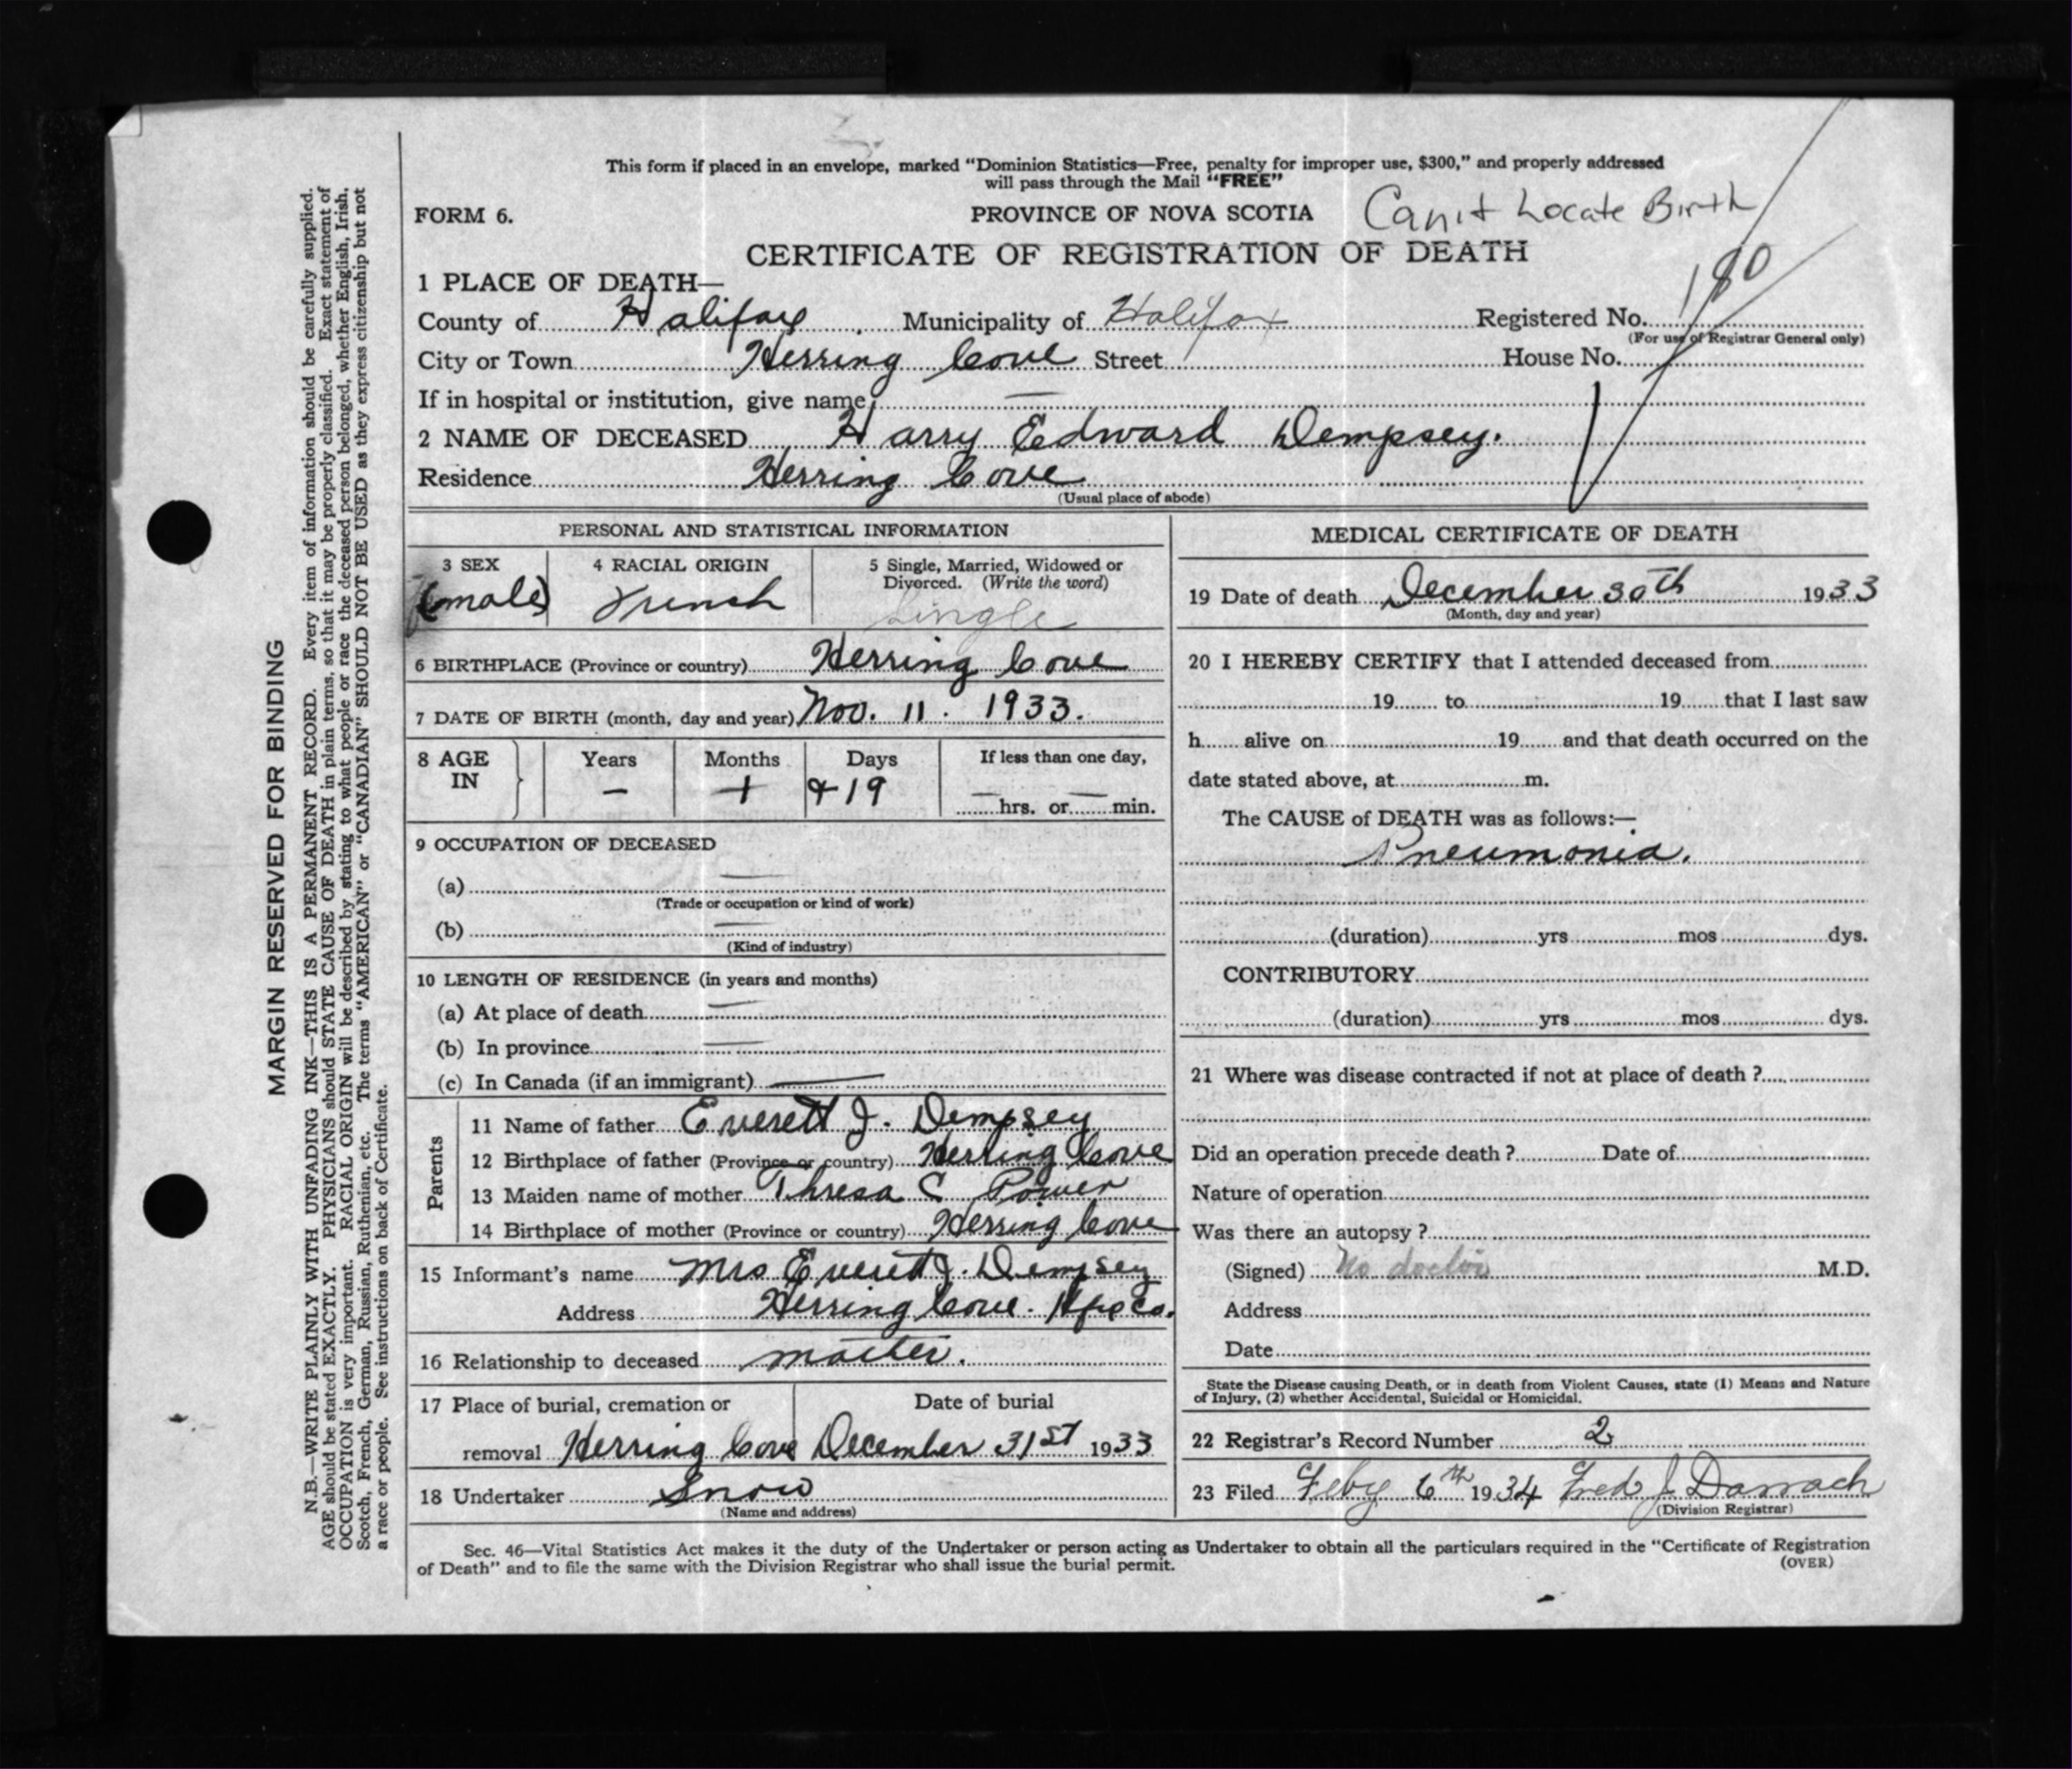 This form if placed in an envelope, marked “Dominion Statistics—Free, penalty for improper use, $300,” and properly addressed
will pass through the Mail “FREE”
FORM 6.
PROVINCE OF NOVA SCOTIA
Can't Locate Birth
CERTIFICATE OF REGISTRATION OF DEATH
1 PLACE OF DEATH—
County of Halifax Municipality of Halifax Registered No. 180
(For use of Registrar General only)
City or Town Herring Cove Street House No.
If in hospital or institution, give name —
2 NAME OF DECEASED Harry Edward Dempsey.
Residence Herring Cove
(Usual place of abode)
PERSONAL AND STATISTICAL INFORMATION
3 SEX
(male)
4 RACIAL ORIGIN
French
5 Single, Married, Widowed or
Divorced. (Write the word)
Single
6 BIRTHPLACE (Province or country) Herring Cove
7 DATE OF BIRTH (month, day and year) Nov. 11. 1933.
8 AGE
IN
Years
—
Months
1
Days
& 19
If less than one day,
— hrs. or — min.
9 OCCUPATION OF DECEASED
(a) —
(Trade or occupation or kind of work)
(b) —
(Kind of industry)
10 LENGTH OF RESIDENCE (in years and months)
(a) At place of death —
(b) In province —
(c) In Canada (if an immigrant) —
Parents
11 Name of father Everett J. Dempsey
12 Birthplace of father (Province or country) Herring Cove
13 Maiden name of mother Thresa C Power
14 Birthplace of mother (Province or country) Herring Cove
15 Informant's name Mrs Everett J. Dempsey
Address Herring Cove. Hfx Co.
16 Relationship to deceased mother.
17 Place of burial, cremation or
removal Herring Cove
Date of burial
December 31st 1933
18 Undertaker Snow
(Name and address)
MEDICAL CERTIFICATE OF DEATH
19 Date of death December 30th 1933
(Month, day and year)
20 I HEREBY CERTIFY that I attended deceased from
19 to 19 that I last saw
h alive on 19 and that death occurred on the
date stated above, at m.
The CAUSE of DEATH was as follows:—
Pneumonia.
(duration) yrs mos dys.
CONTRIBUTORY
(duration) yrs mos dys.
21 Where was disease contracted if not at place of death ?
Did an operation precede death ? Date of
Nature of operation
Was there an autopsy ?
(Signed) No doctor M.D.
Address
Date
State the Disease causing Death, or in death from Violent Causes, state (1) Means and Nature
of Injury, (2) whether Accidental, Suicidal or Homicidal.
22 Registrar's Record Number 2
23 Filed Feby 6th 1934 Fred J Darrach
(Division Registrar)
Sec. 46—Vital Statistics Act makes it the duty of the Undertaker or person acting as Undertaker to obtain all the particulars required in the “Certificate of Registration
of Death” and to file the same with the Division Registrar who shall issue the burial permit.
(OVER)
MARGIN RESERVED FOR BINDING
N.B.—WRITE PLAINLY WITH UNFADING INK—THIS IS A PERMANENT RECORD. Every item of information should be carefully supplied.
AGE should be stated EXACTLY. PHYSICIANS should STATE CAUSE OF DEATH in plain terms, so that it may be properly classified. Exact statement of
OCCUPATION is very important. RACIAL ORIGIN will be described by stating to what people or race the deceased person belonged, whether English, Irish,
Scotch, French, German, Russian, Ruthenian, etc. The terms “AMERICAN” or “CANADIAN” SHOULD NOT BE USED as they express citizenship but not
a race or people. See instructions on back of Certificate.